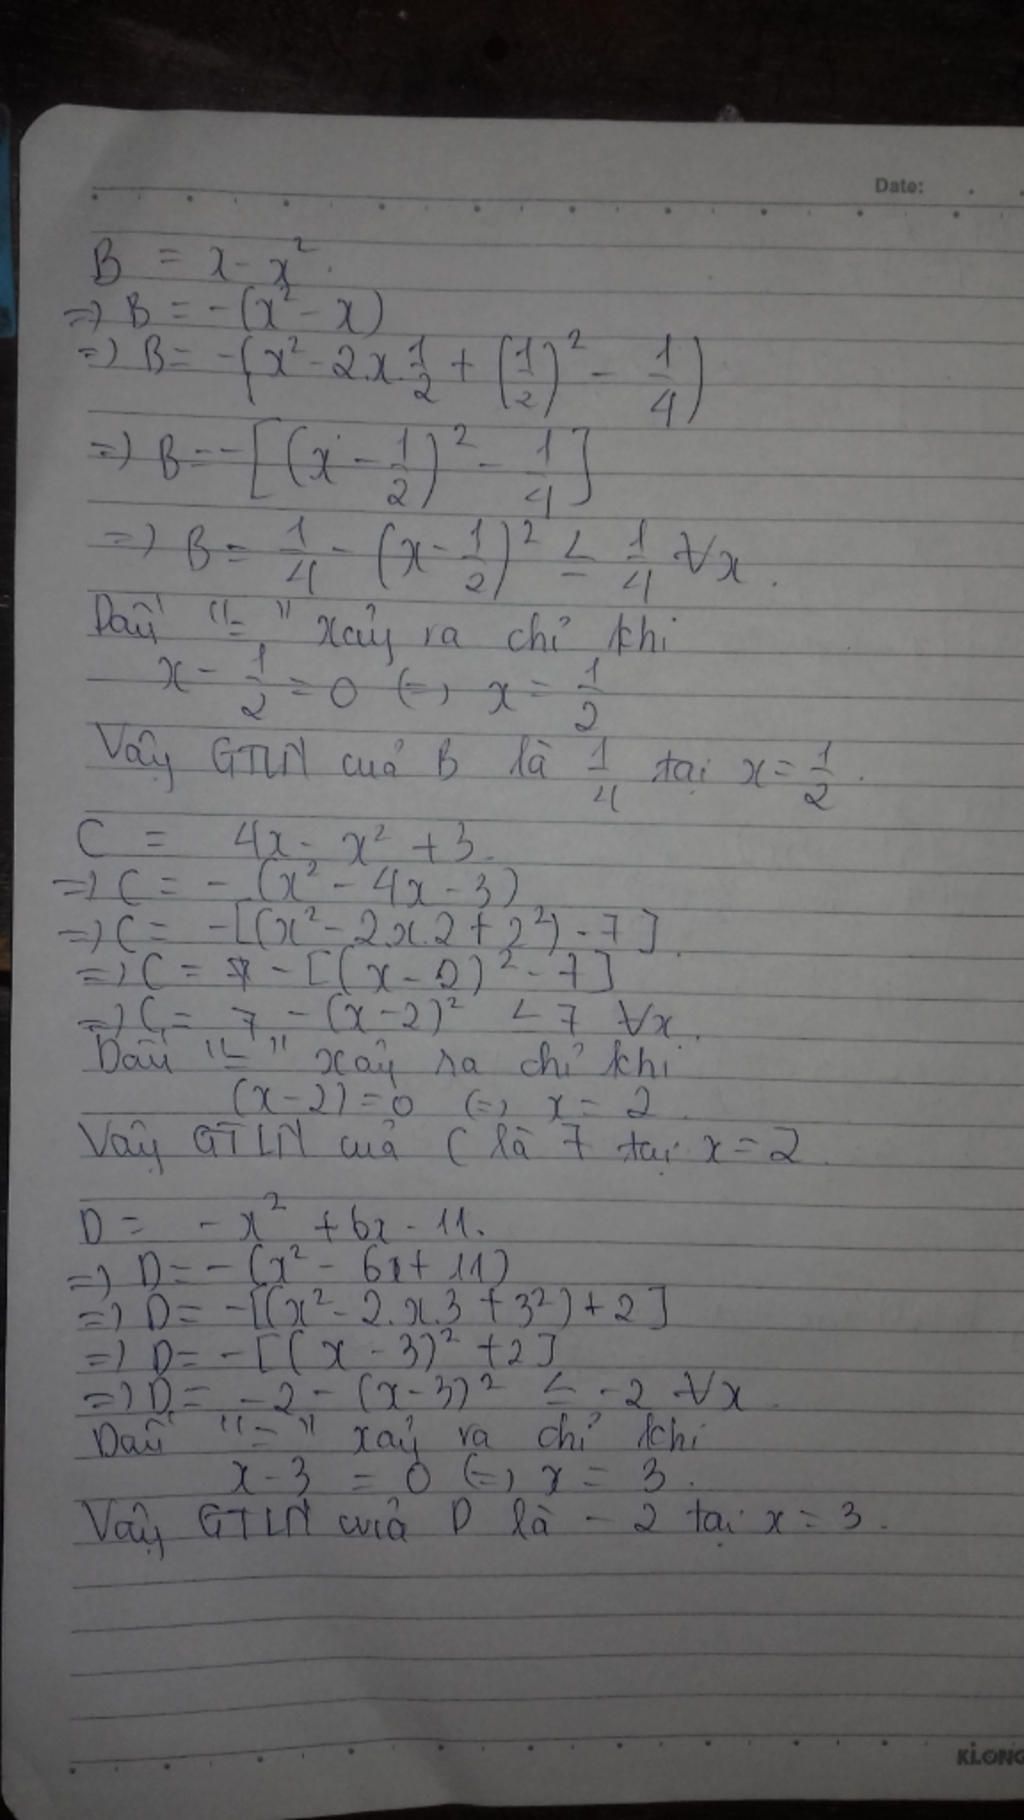 Date:
B = x - x².
=> B = -(x² - x)
=> B = -(x² - 2.x 1/2 + (1/2)² - 1/4)
=> B = -[(x - 1/2)² - 1/4]
=> B = 1/4 - (x - 1/2)² ≤ 1/4 ∀x.
Dấu "=" xảy ra chỉ khi
x - 1/2 = 0 <=> x = 1/2
Vậy GTLN cuả B là 1/4 tại x = 1/2.
C = 4x - x² + 3.
=> C = -(x² - 4x - 3)
=> C = -[(x² - 2.x.2 + 2²) - 7]
=> C = - [(x - 2)² - 7]
=> C = 7 - (x - 2)² ≤ 7 ∀x.
Dấu "=" xảy ra chỉ khi
(x - 2) = 0 <=> x = 2.
Vậy GTLN cuả C là 7 tại x = 2.
D = -x² + 6x - 11.
=> D = -(x² - 6x + 11)
=> D = -[(x² - 2.x.3 + 3²) + 2]
=> D = -[(x - 3)² + 2]
=> D = -2 - (x - 3)² ≤ -2 ∀x.
Dấu "=" xảy ra chỉ khi
x - 3 = 0 <=> x = 3.
Vậy GTLN cuả D là -2 tại x = 3.
KLONG